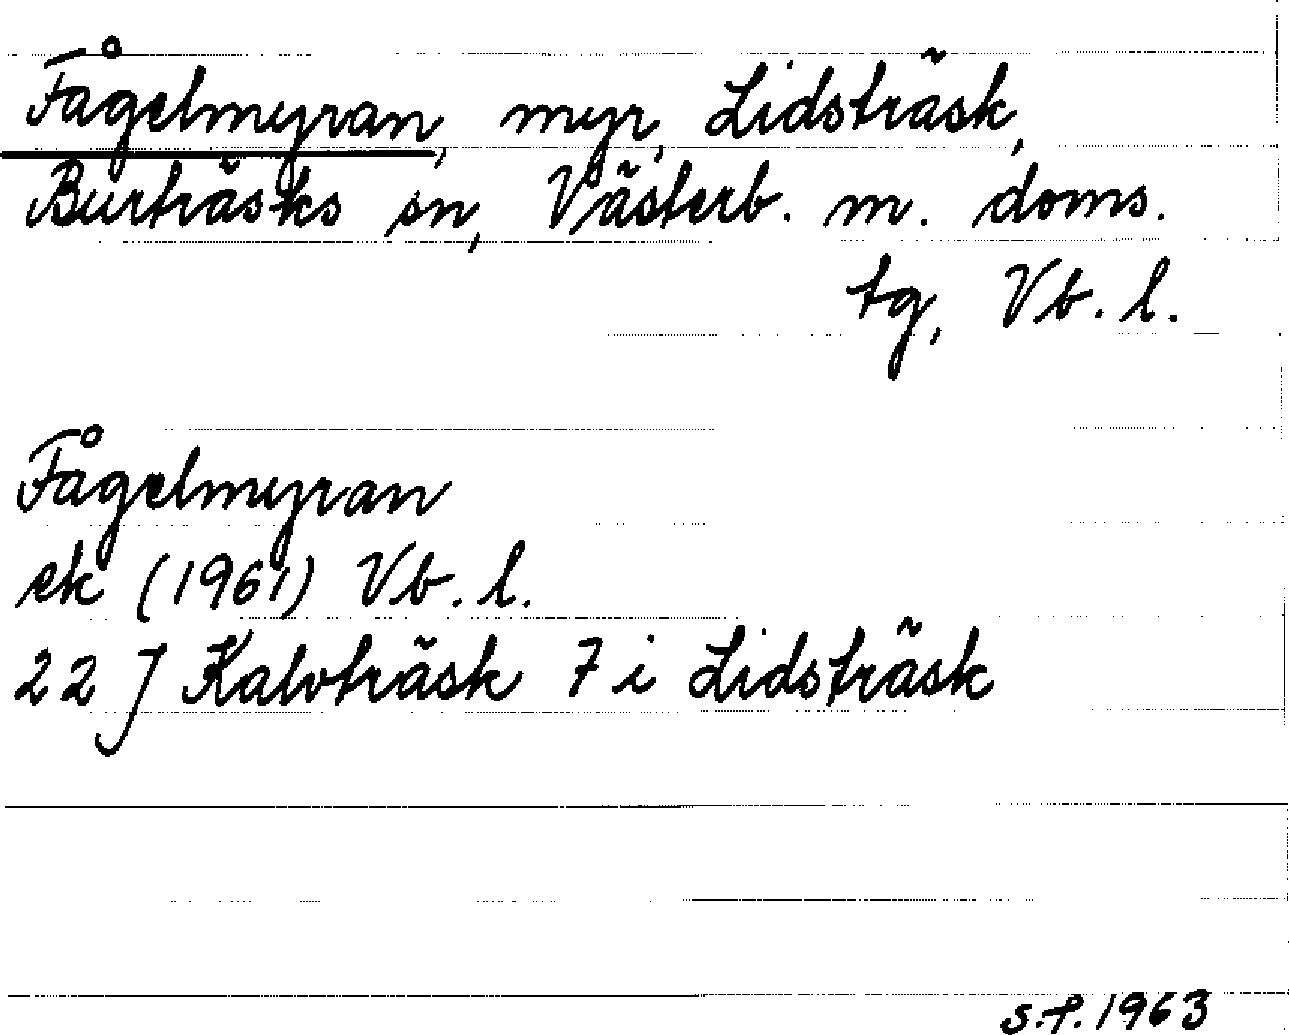 Fågelmyran, myr, Lidsträsk,
Burträsks sn, Västerb. m. doms.
tg, Vb. l.
Fågelmyran
ek (1961) Vb. l.
22 J Kalvträsk 7 i Lidsträsk
s.f. 1963